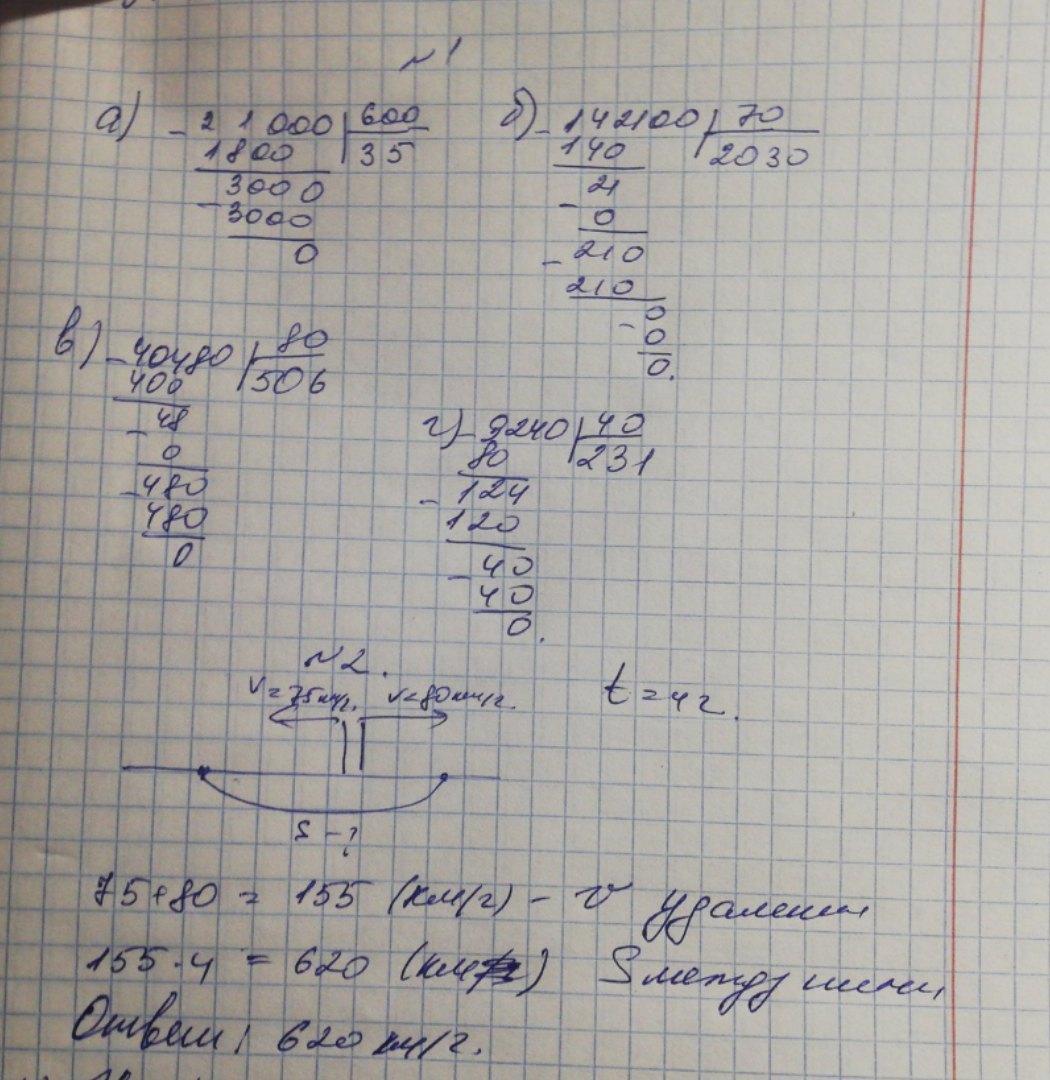 ~1
а) - 21000 | 600
1800 | 35
3000
- 3000
0
б) - 142100 | 70
140 | 2030
21
- 0
- 210
210
0
- 0
0.
в) - 40480 | 80
400 | 506
- 48
0
- 480
480
0
г) - 9240 | 40
80 | 231
- 124
120
- 40
40
0.
~2.
v=75км/г. v=80км/г. t=4г.
S-?
75+80 = 155 (км/г) - v удаления
155·4 = 620 (км) S между ними
Ответ: 620 км/г.